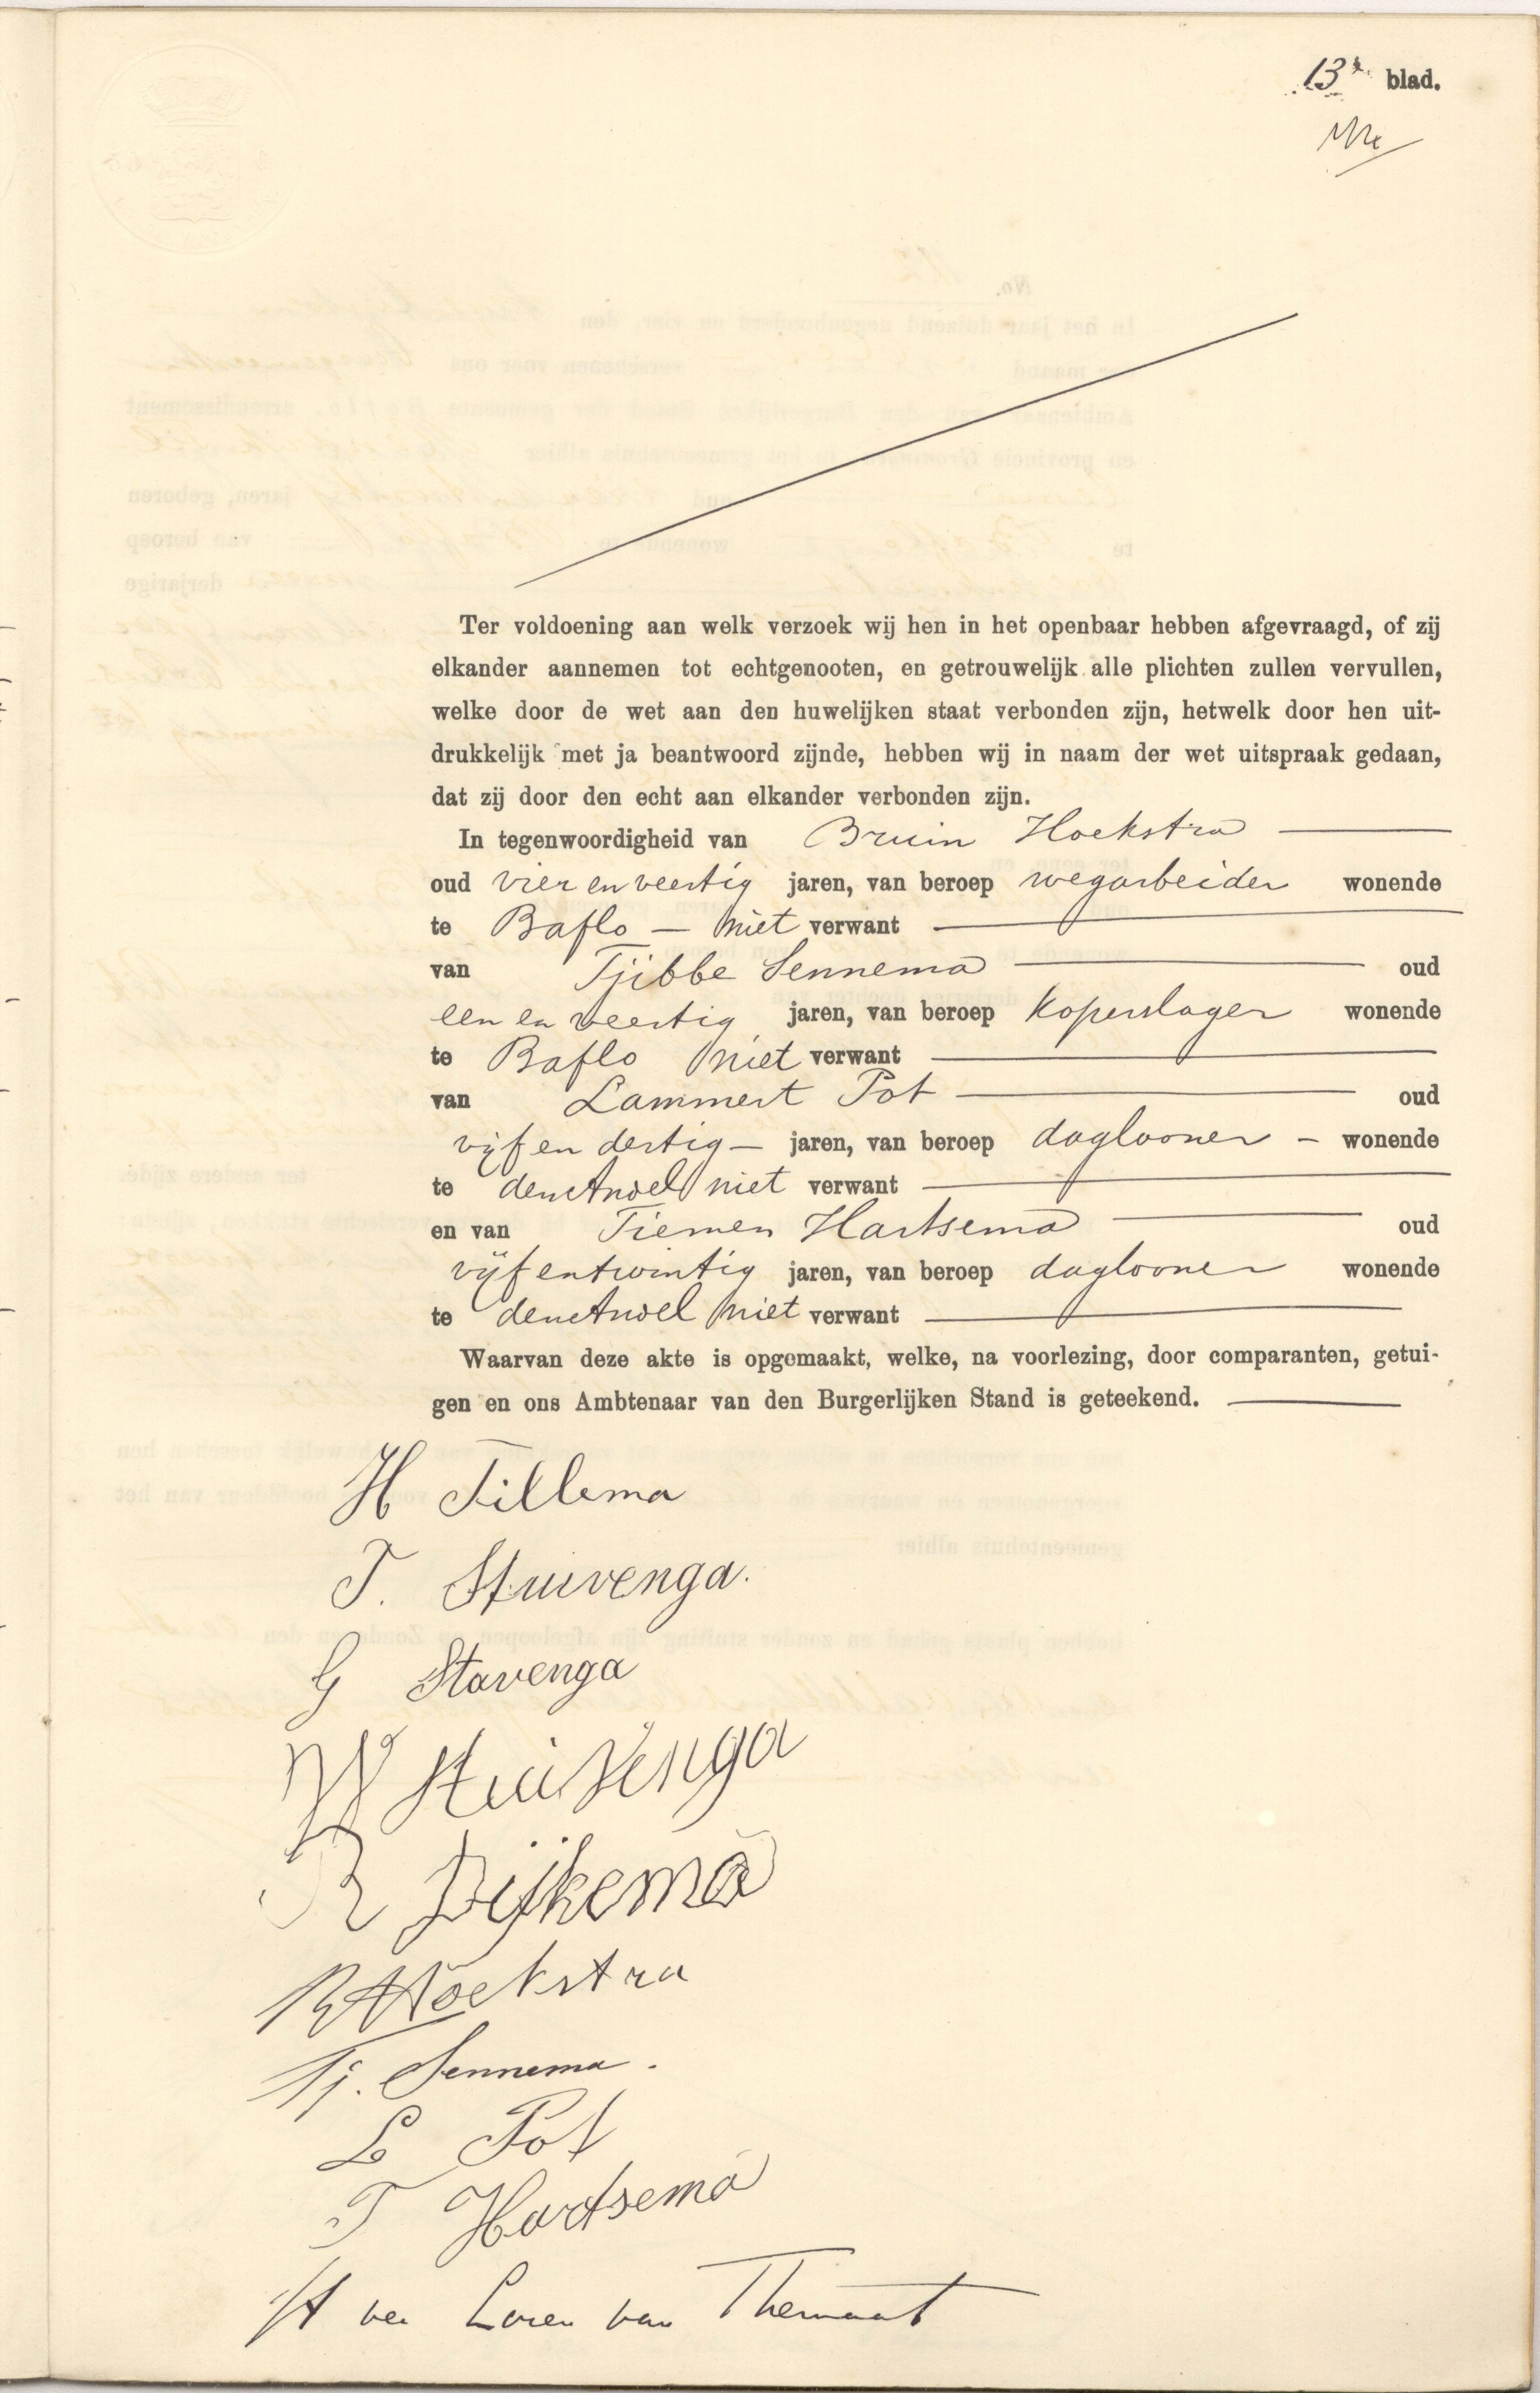 13e blad.
Ter voldoening aan welk verzoek wij hen in het openbaar hebben afgevraagd, of zij
elkander aannemen tot echtgenooten, en getrouwelijk alle plichten zullen vervullen,
welke door de wet aan den huwelijken staat verbonden zijn, hetwelk door hen uit-
drukkelijk met ja beantwoord zijnde, hebben wij in naam der wet uitspraak gedaan,
dat zij door den echt aan elkander verbonden zijn.
In tegenwoordigheid van Bruin Hoekstra
oud vier en veertig jaren, van beroep wegarbeider wonende
te Baflo — niet verwant
van Tjibbe Sennema oud
een en veertig jaren, van beroep koperslager wonende
te Baflo niet verwant
van Lammert Pot oud
vijf en dertig — jaren, van beroep daglooner — wonende
te den Andel niet verwant
en van Tiemen Hartsema oud
vijf entwintig jaren, van beroep daglooner wonende
te den Andel niet verwant
Waarvan deze akte is opgemaakt, welke, na voorlezing, door comparanten, getui-
gen en ons Ambtenaar van den Burgerlijken Stand is geteekend.
H Tillema
T. Stuivenga.
G Stavenga
W Stuivenga
R Dijkema
B Hoekstra
Tj. Sennema.
L Pot
T Hartsema
H ver Loren van Themaat